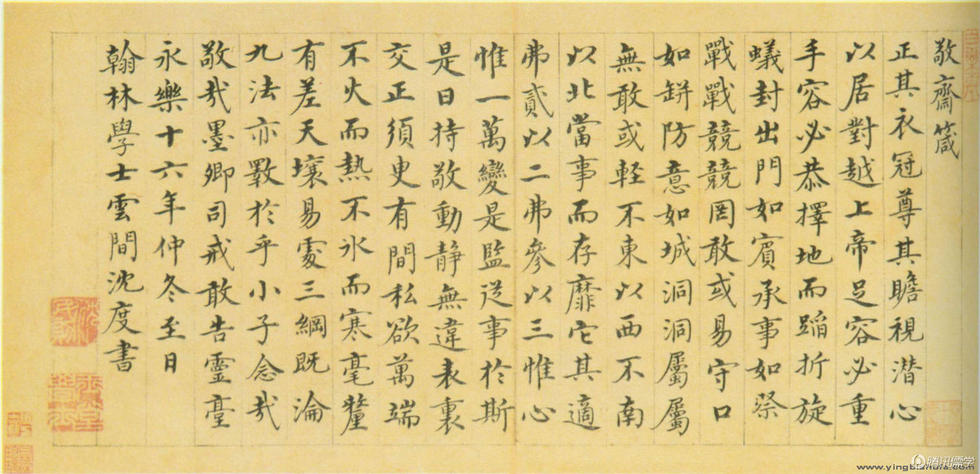 敬齋箴
正其衣冠尊其瞻視潛心
以居對越上帝足容必重
手容必恭擇地而蹈折旋
蟻封出門如賓承事如祭
戰戰競競罔敢或易守口
如缾防意如城洞洞屬屬
無敢或輕不東以西不南
以北當事而存靡它其適
弗貳以二弗參以三惟心
惟一萬變是監從事於斯
是曰持敬動靜無違表裏
交正須臾有間私欲萬端
不火而熱不氷而寒毫釐
有差天壤易處三綱既淪
九法亦斁於乎小子念哉
敬哉墨卿司戒敢告靈臺
永樂十六年仲冬至日
翰林學士雲間沈度書
www.yingbishufa.com
腾讯儒学